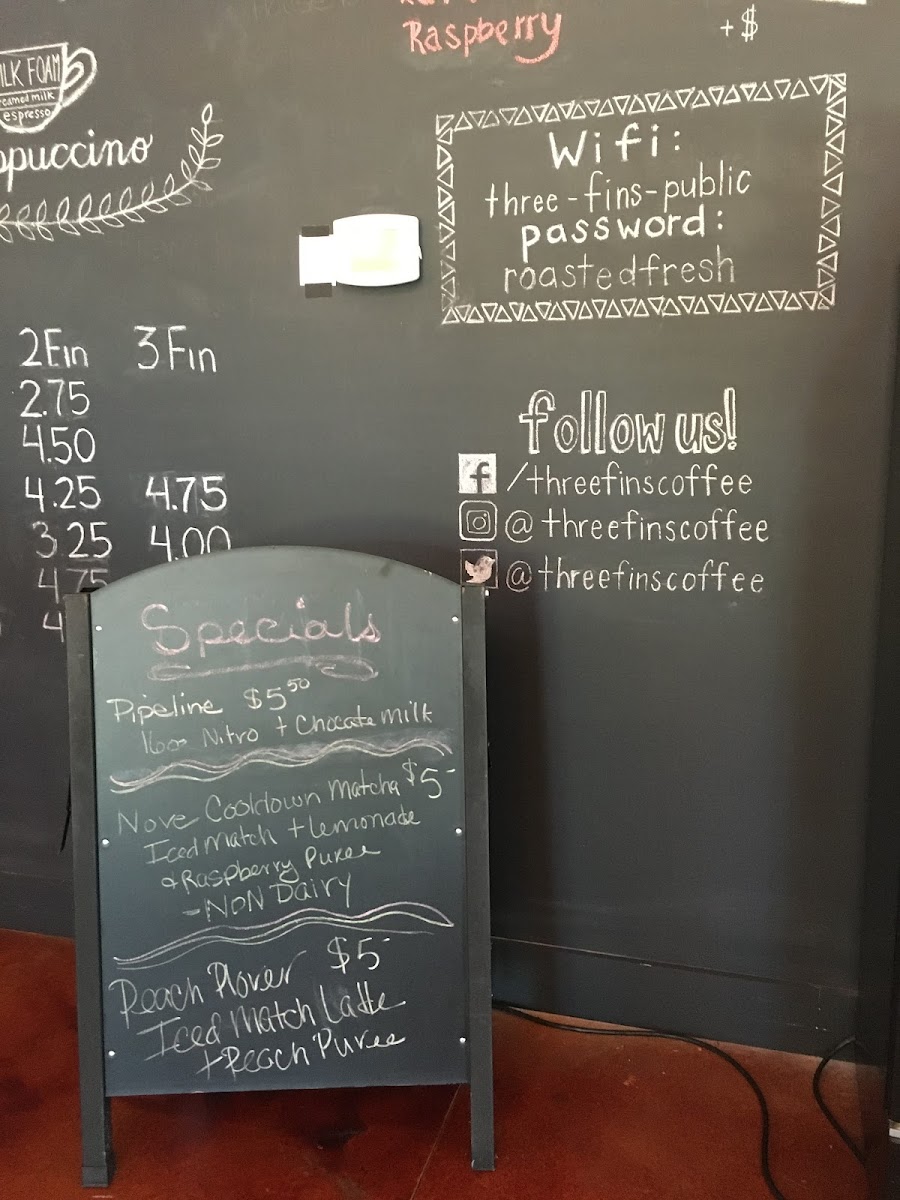 Raspberry
+$
MILK FOAM
espresso
Wifi:
three-fins-public
password:
roastedfresh
2Fin 3Fin
2.75
4.50
4.25 4.75
3.25 4.00
4.75
follow us!
f /threefinscoffee
@threefinscoffee
@threefinscoffee
Specials
Pipeline $5.50
16oz Nitro + Chocate milk
Nove Cooldown Matcha $5-
Iced match + lemonade
& Raspberry Puree
-NON Dairy
Peach Plover $5-
Iced Match Latte
+ Peach Puree